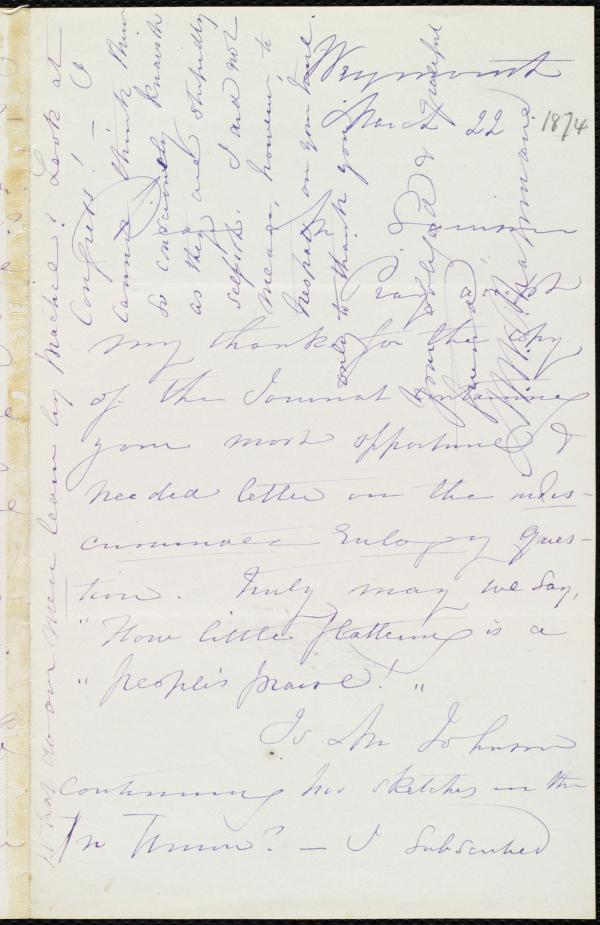 Weymouth
March 22. 1874
Dear Mr. Garrison
Pray accept
my thanks for the copy
of the Journal containing
your most opportune &
needed letter on the indis-
criminate Eulogy ques-
tion. Truly may we say,
"How little flattering is a
"people's praise!"
Is Mr Johnson
continuing his sketches in the
Ch Union? — I subscribed
What do our men learn by practice? Look at
Congress! — I
cannot think them
so consciously knavish
as they are stupidly
selfish. I did not
mean, however, to
trespass on your time.
only to thank you
Your obliged & grateful
friend
M. W. Chapman